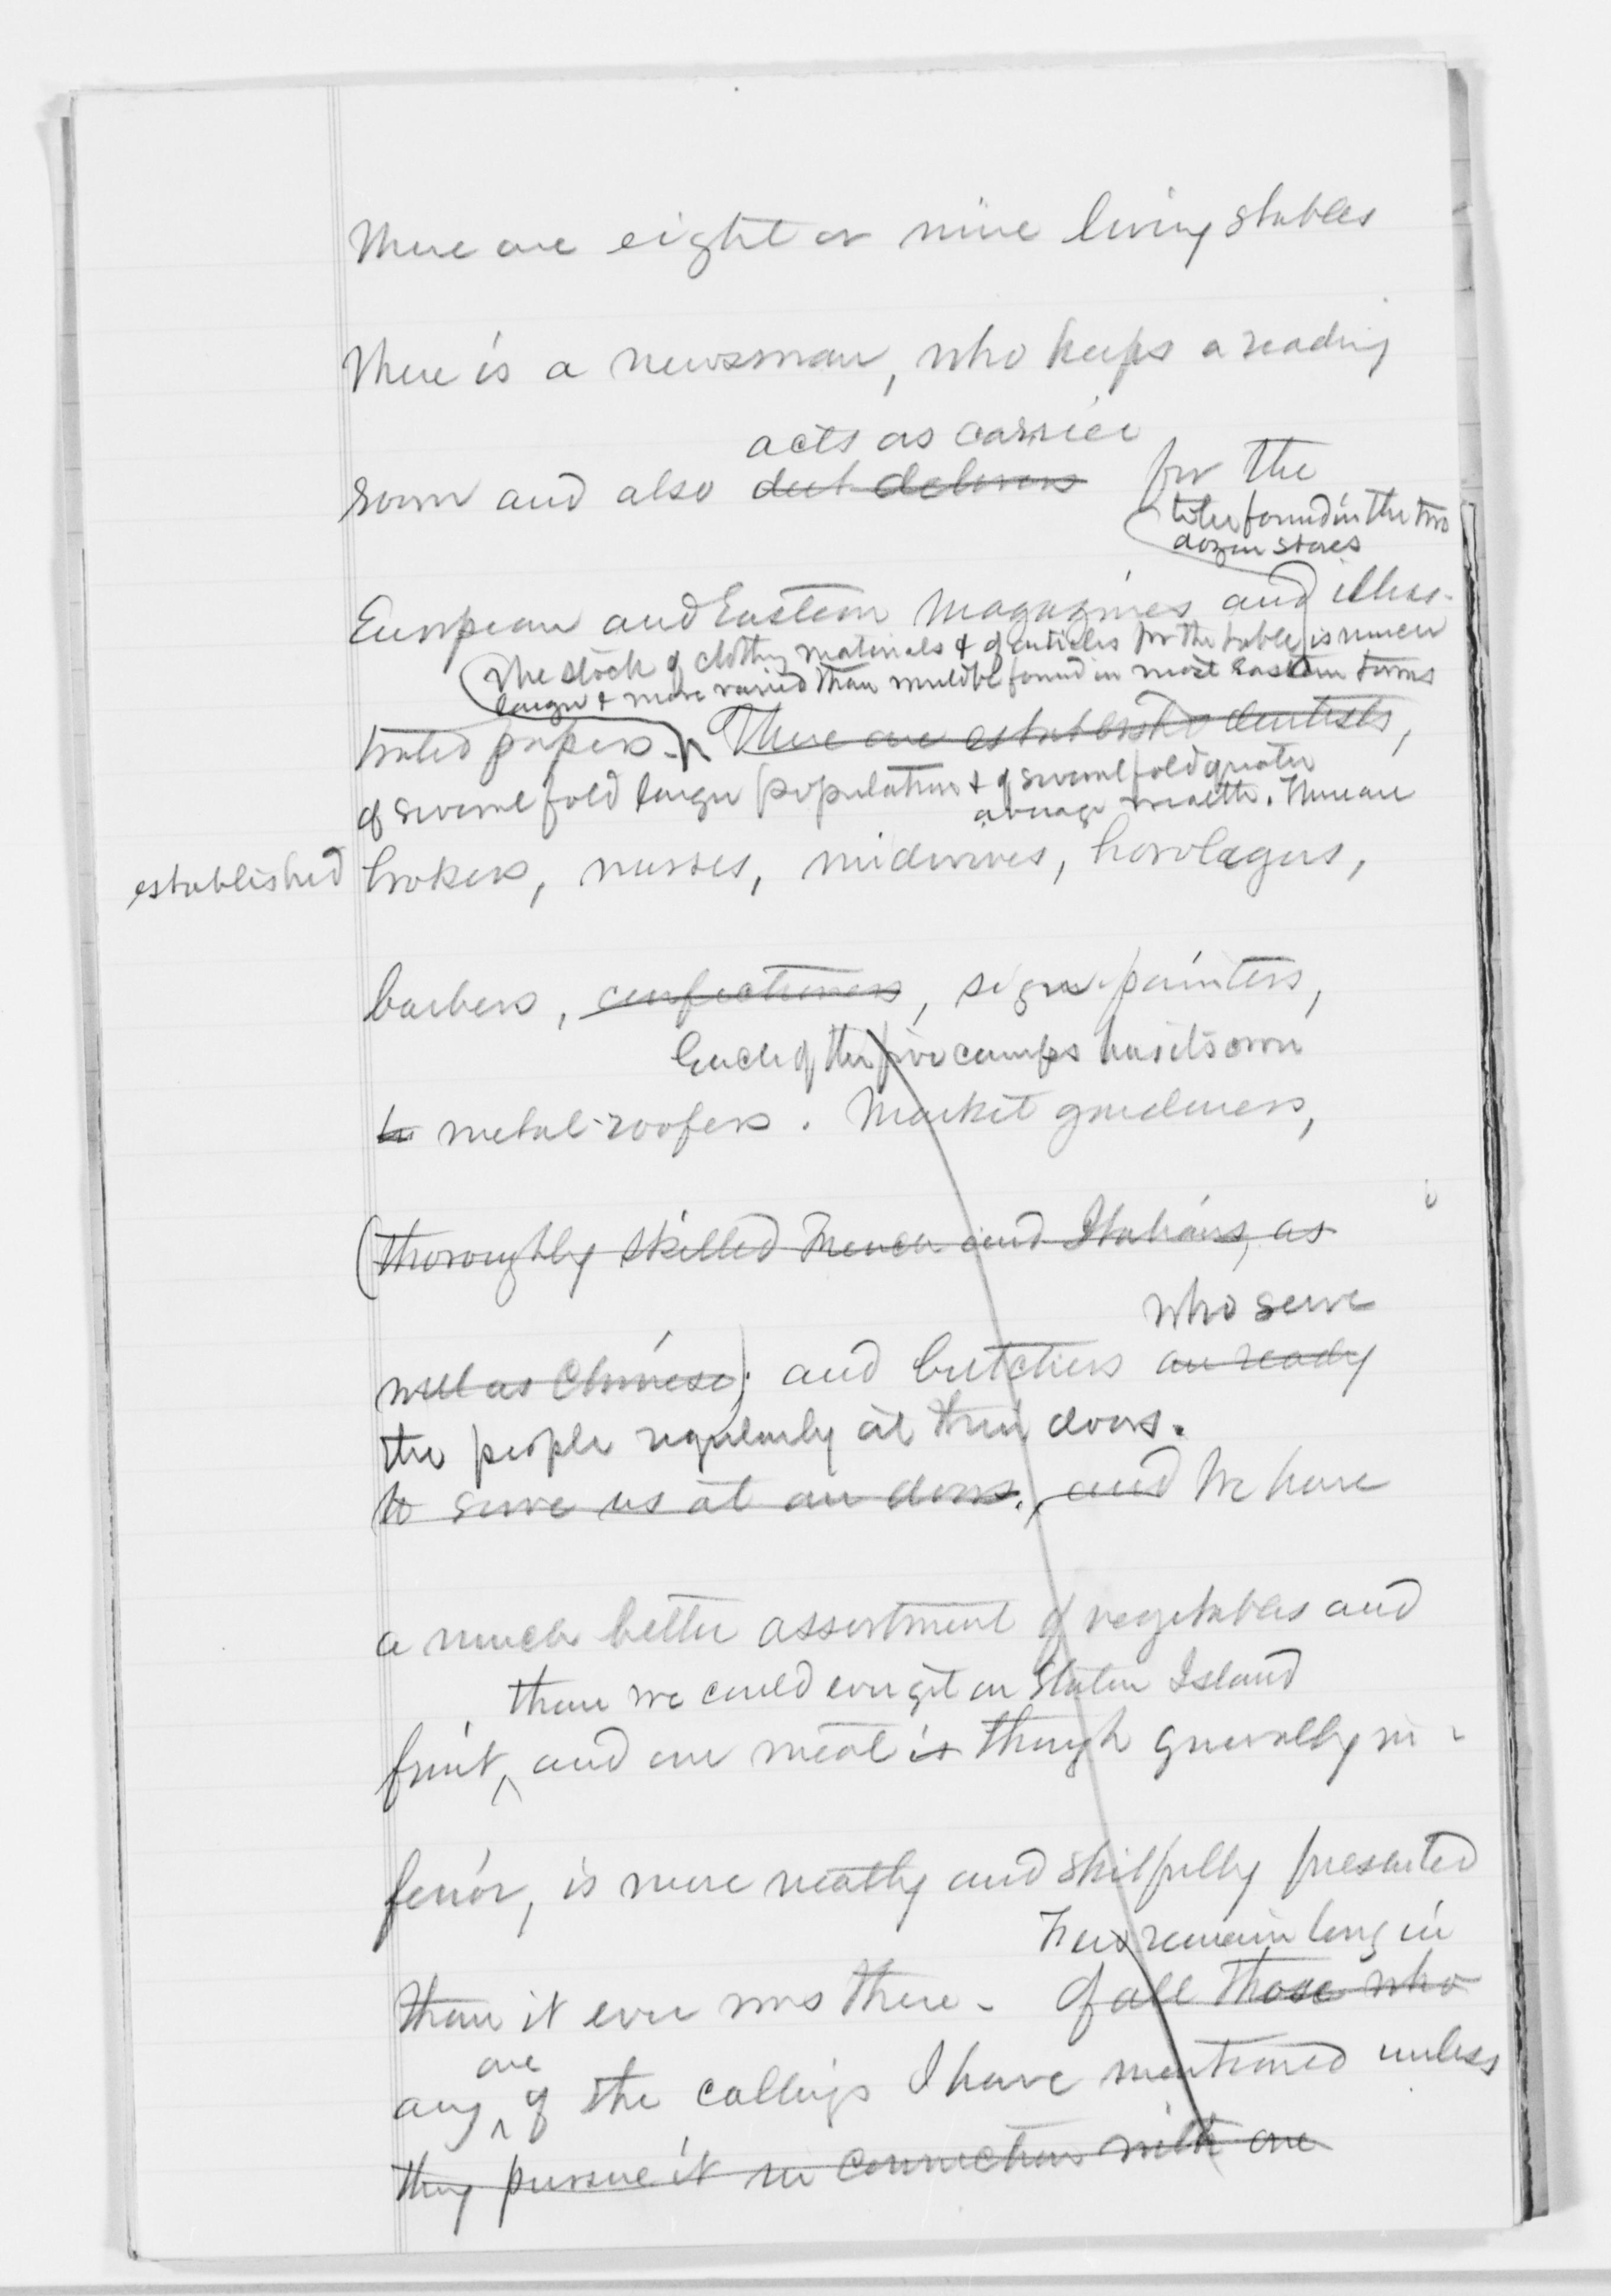 There are eight or nine livery stables
There is a newsman, who keeps a reading
acts as carrier
room and also delivers for the
to be found in the two
dozen stores
European and Eastern Magazines and illus-
The stock of clothing materials & of articles for the table is much
larger & more varied than would be found in most Eastern towns
trated papers. There are established dentists,
of several fold larger population & of several fold greater
average wealth. There are
established brokers, nurses, midwives, horolagers,
barbers, confectioners, sign-painters,
Each of the five camps has its own
metal-roofers. Market gardeners,
(thoroughly skilled French and Italians, as
who serve
well as Chinese); and butchers are ready
the people regularly at their doors.
to serve us at our doors, and We have
a much better assortment of vegetables and
than we could ever get on Staten Island
fruit, and our meat is though generally in-
ferior, is more neatly and skilfully presented
Few remain long in
than it ever was there. Of all those who
one
any of the callings I have mentioned unless
they pursue it in connection with one